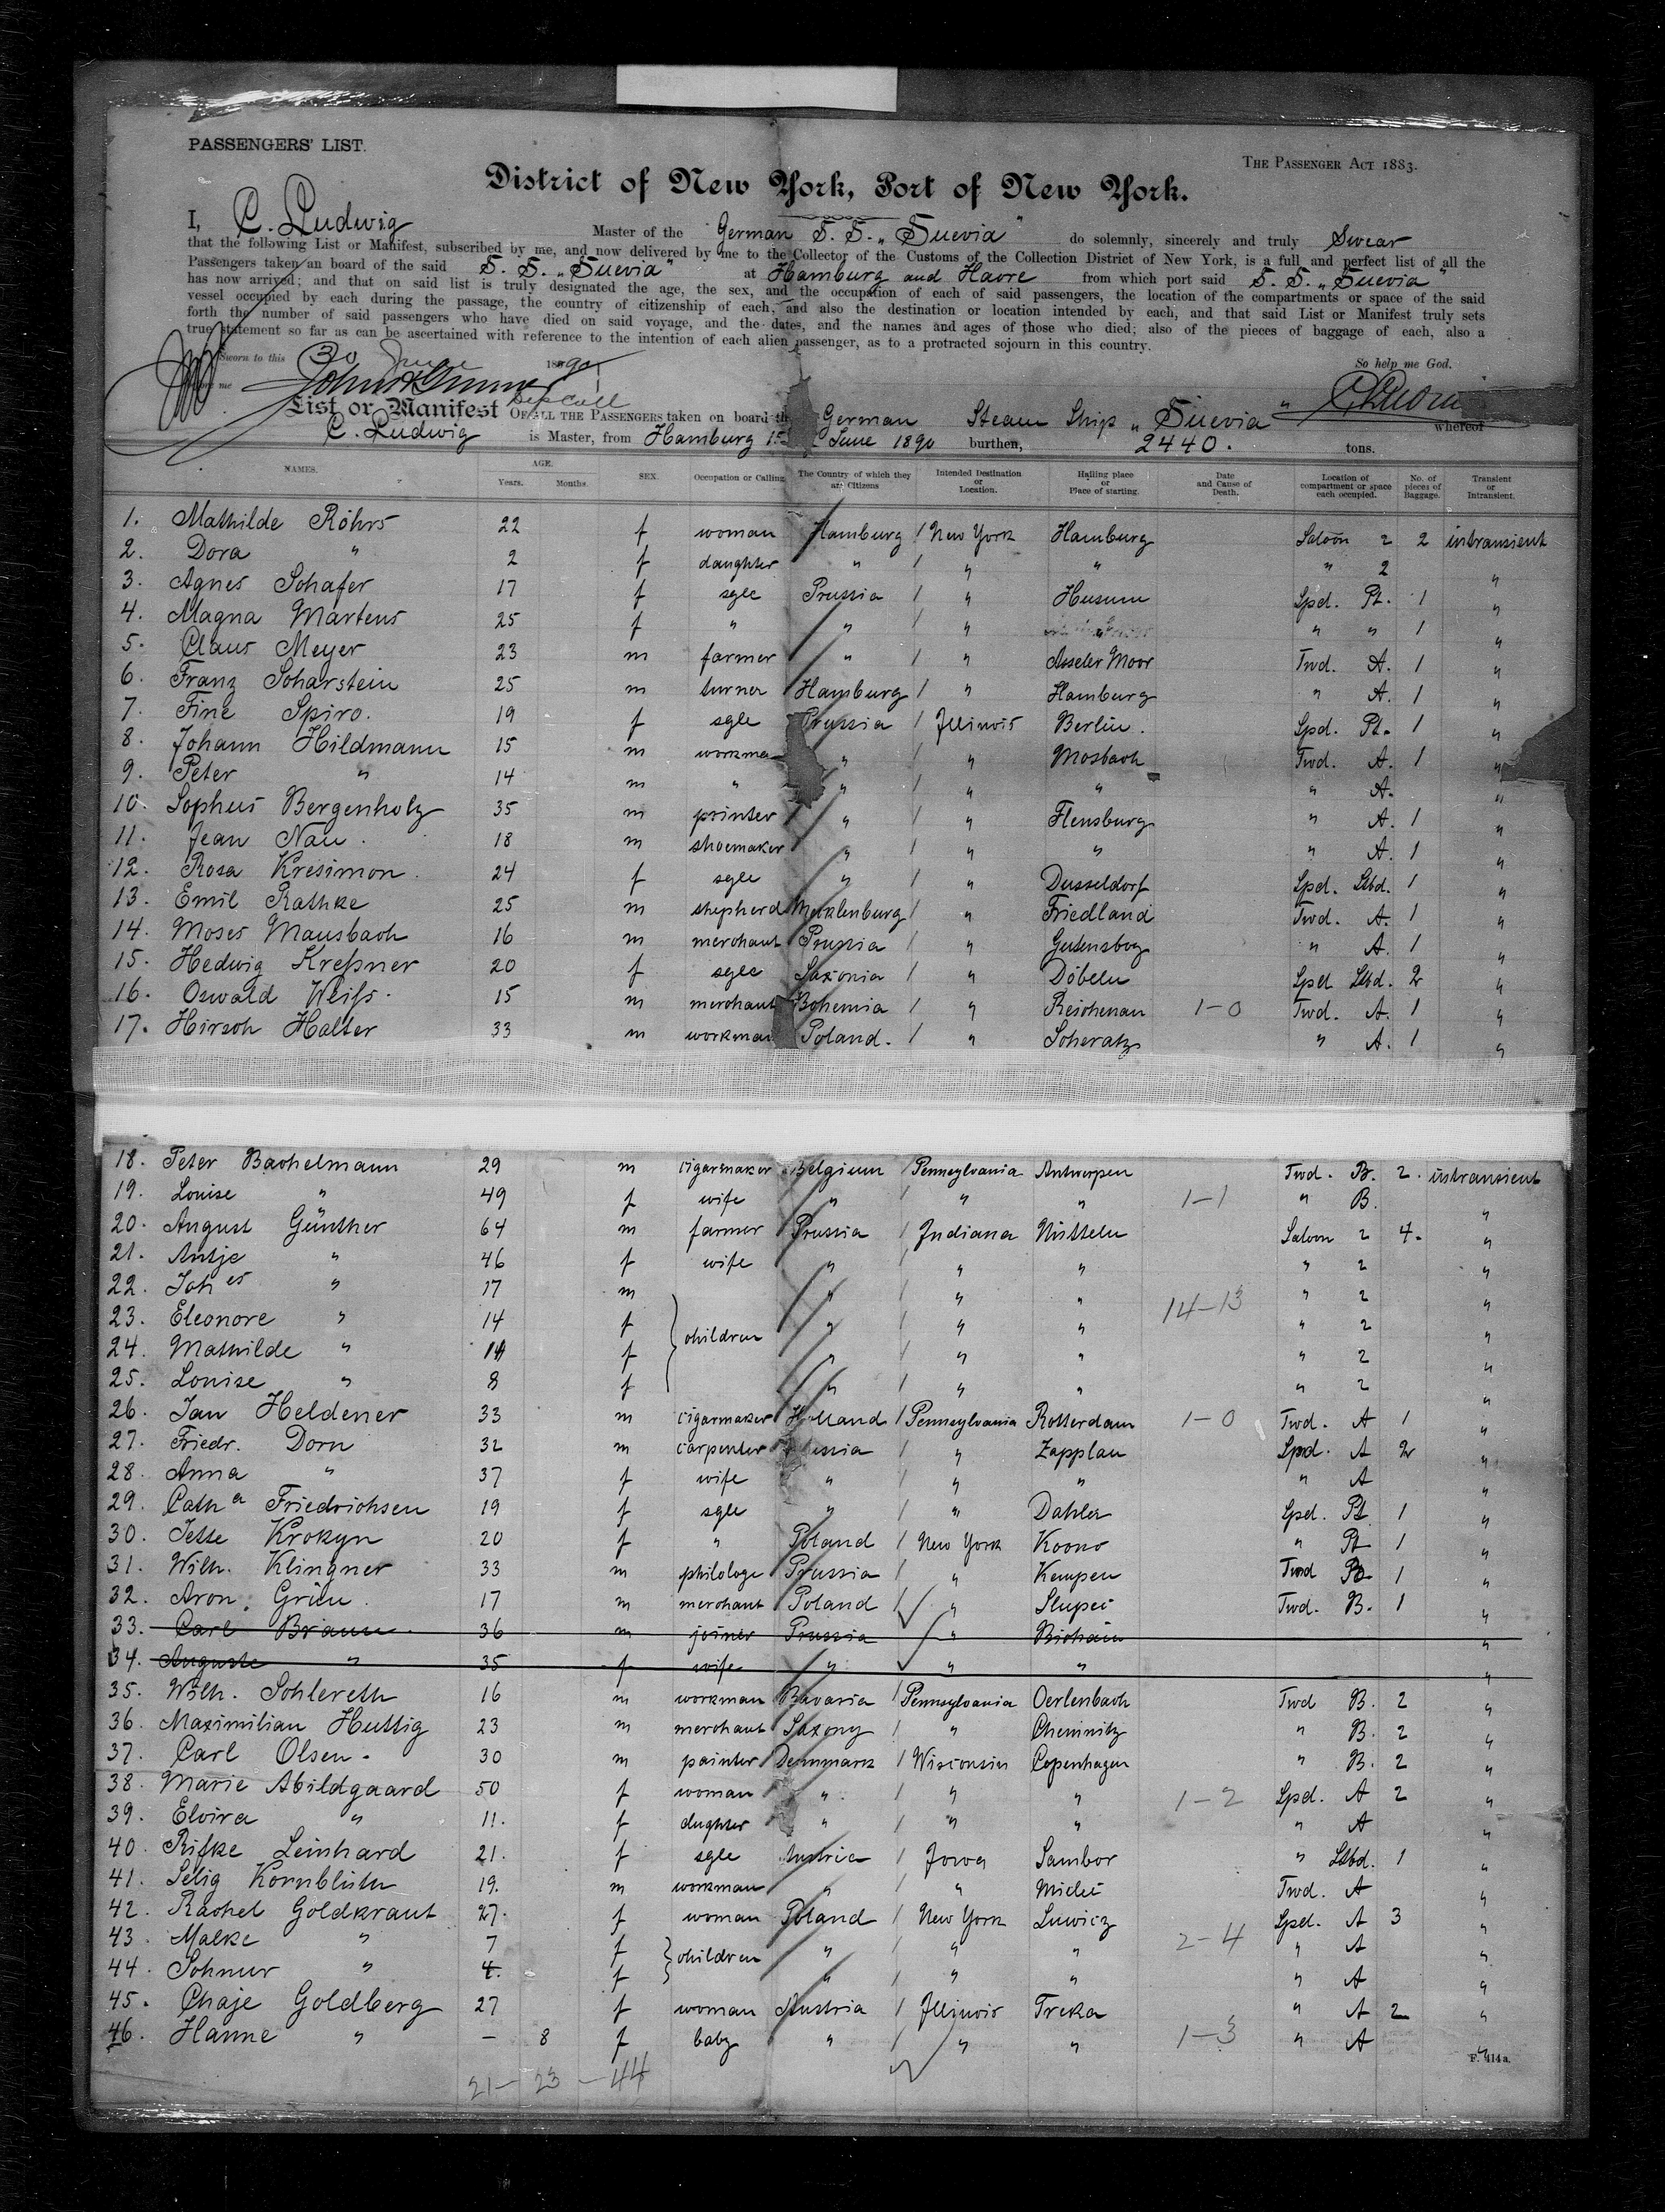 PASSENGERS' LIST.
THE PASSENGER ACT 1883.
District of New York, Port of New York.
I, C. Ludwig Master of the German S. S. „Suevia" do solemnly, sincerely and truly Swear
that the following List or Manifest, subscribed by me, and now delivered by me to the Collector of the Customs of the Collection District of New York, is a full and perfect list of all the
Passengers taken an board of the said S. S. „Suevia" at Hamburg and Havre from which port said S. S. „Suevia"
has now arrived; and that on said list is truly designated the age, the sex, and the occupation of each of said passengers, the location of the compartments or space of the said
vessel occupied by each during the passage, the country of citizenship of each, and also the destination or location intended by each, and that said List or Manifest truly sets
forth the number of said passengers who have died on said voyage, and the dates, and the names and ages of those who died; also of the pieces of baggage of each, also a
true statement so far as can be ascertained with reference to the intention of each alien passenger, as to a protracted sojourn in this country.
Sworn to this 30 June 1890 So help me God.
me
List or Manifest OF ALL THE PASSENGERS taken on board th German Steam Ship „Suevia" whereof
C. Ludwig is Master, from Hamburg 15 June 1890 burthen, 2440. tons.
NAMES. AGE. Years. Months. SEX. Occupation or Calling The Country of which they are Citizens Intended Destination or Location. Hailing place or Place of starting. Date and Cause of Death. Location of compartment or space each occupied. No. of pieces of Baggage. Transient or Intransient.
1. Mathilde Röhrs 22 f woman Hamburg / New York Hamburg Saloon 2 2 intransient
2. Dora " 2 f daughter " / " " " 2 "
3. Agnes Schafer 17 f sgle Prussia / " Husum Spd. Pt. 1 "
4. Magna Martens 25 f " " / " " " 1 "
5. Claus Meyer 23 m farmer " / " Asseler Moor Twd. A. 1 "
6. Franz Scharstein 25 m turner Hamburg / " Hamburg " A. 1 "
7. Fine Spiro. 19 f sgle Prussia / Illinois Berlin. Spd. Pt. 1 "
8. Johann Hildmann 15 m workma " " Mosbach Twd. A. 1 "
9. Peter " 14 m " " / " " " A. "
10. Sophus Bergenholz 35 m printer " / " Flensburg " A. 1 "
11. Jean Nau. 18 m shoemaker " / " " " A. 1 "
12. Rosa Kresimon 24 f sgle " / " Dusseldorf Spd. Stbd. 1 "
13. Emil Rathke 25 m shepherd Mecklenburg / " Friedland Twd. A. 1 "
14. Moses Mausbach 16 m merchant Prussia / " Gutensbg " A. 1 "
15. Hedwig Kreßner 20 f sgle Saxonia / " Döbeln Spd Stbd. 2 "
16. Oswald Weiß. 15 m merchant Bohemia / " Reichenau 1-0 Twd. A. 1 "
17. Hirsch Halter 33 m workman Poland. / " Scheratz " A. 1 "
18. Peter Bachelmann 29 m cigarmaker Belgium / Pennsylvania Antwerpen Twd. B. 2. intransient
19. Louise " 49 f wife " / " " 1-1 " B. "
20. August Günther 64 m farmer Prussia / Indiana Nütteln Saloon 2 4. "
21. Antje " 46 f wife " " " " 2 "
22. Johes " 17 m " / " " 14-13 " 2 "
23. Eleonore " 14 f children " / " " " 2 "
24. Mathilde " 14 f " / " " " 2 "
25. Louise " 8 f " / " " " 2 "
26. Jan Heldener 33 m cigarmaker Holland / Pennsylvania Rotterdam 1-0 Twd. A 1 "
27. Friedr. Dorn 32 m carpenter ussia / " Zapplau Spd. A 2 "
28. Anna " 37 f wife " / " " " A "
29. Catha Friedrichsen 19 f sgle " / " Dahler Spd. Pt 1 "
30. Jette Krokyn 20 f " Poland / New York Kovno " Pt 1 "
31. Wilh. Klingner 33 m philologe Prussia / " Kempen Twd B 1 "
32. Aron Grün. 17 m merchant Poland / " Slupce Twd. B. 1 "
33. Carl Braun 36 m joiner Prussia " "
34. Auguste " 35 f wife " " " "
35. Wilh. Schlereth 16 m workman Bavaria / Pennsylvania Oerlenbach Twd B. 2 "
36. Maximilian Huttig 23 m merchant Saxony / " Chemnitz " B. 2 "
37. Carl Olsen. 30 m painter Denmark / Wisconsin Copenhagen " B. 2 "
38. Marie Abildgaard 50 f woman " / " " 1-2 Spd. A 2 "
39. Elvira " 11. f dughter " / " " " A "
40. Rifke Leinhard 21. f sgle Austria / Jowa Sambor " Stbd. 1 "
41. Selig Kornblüth 19. m workman " / " Twd. A "
42. Rachel Goldkraut 27. f woman Poland / New York Luwicz Spd. A 3 "
43. Malke " 7 f children " / " " 2-4 " A "
44. Schmur " 4. f " / " " " A "
45. Chaje Goldberg 27 f woman Austria / Illinois Treka " A 2 "
46. Hanne " - 8 f baby " / " " 1-3 " A "
F. 414a.
21- 23 -44